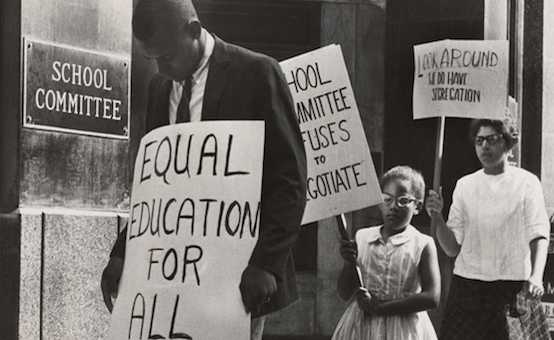 SCHOOL
COMMITTEE
EQUAL
EDUCATION
FOR
ALL
HOOL
MMITTEE
FUSES
TO
GOTIATE
LOOK AROUND
WE DO HAVE
SEGREGATION